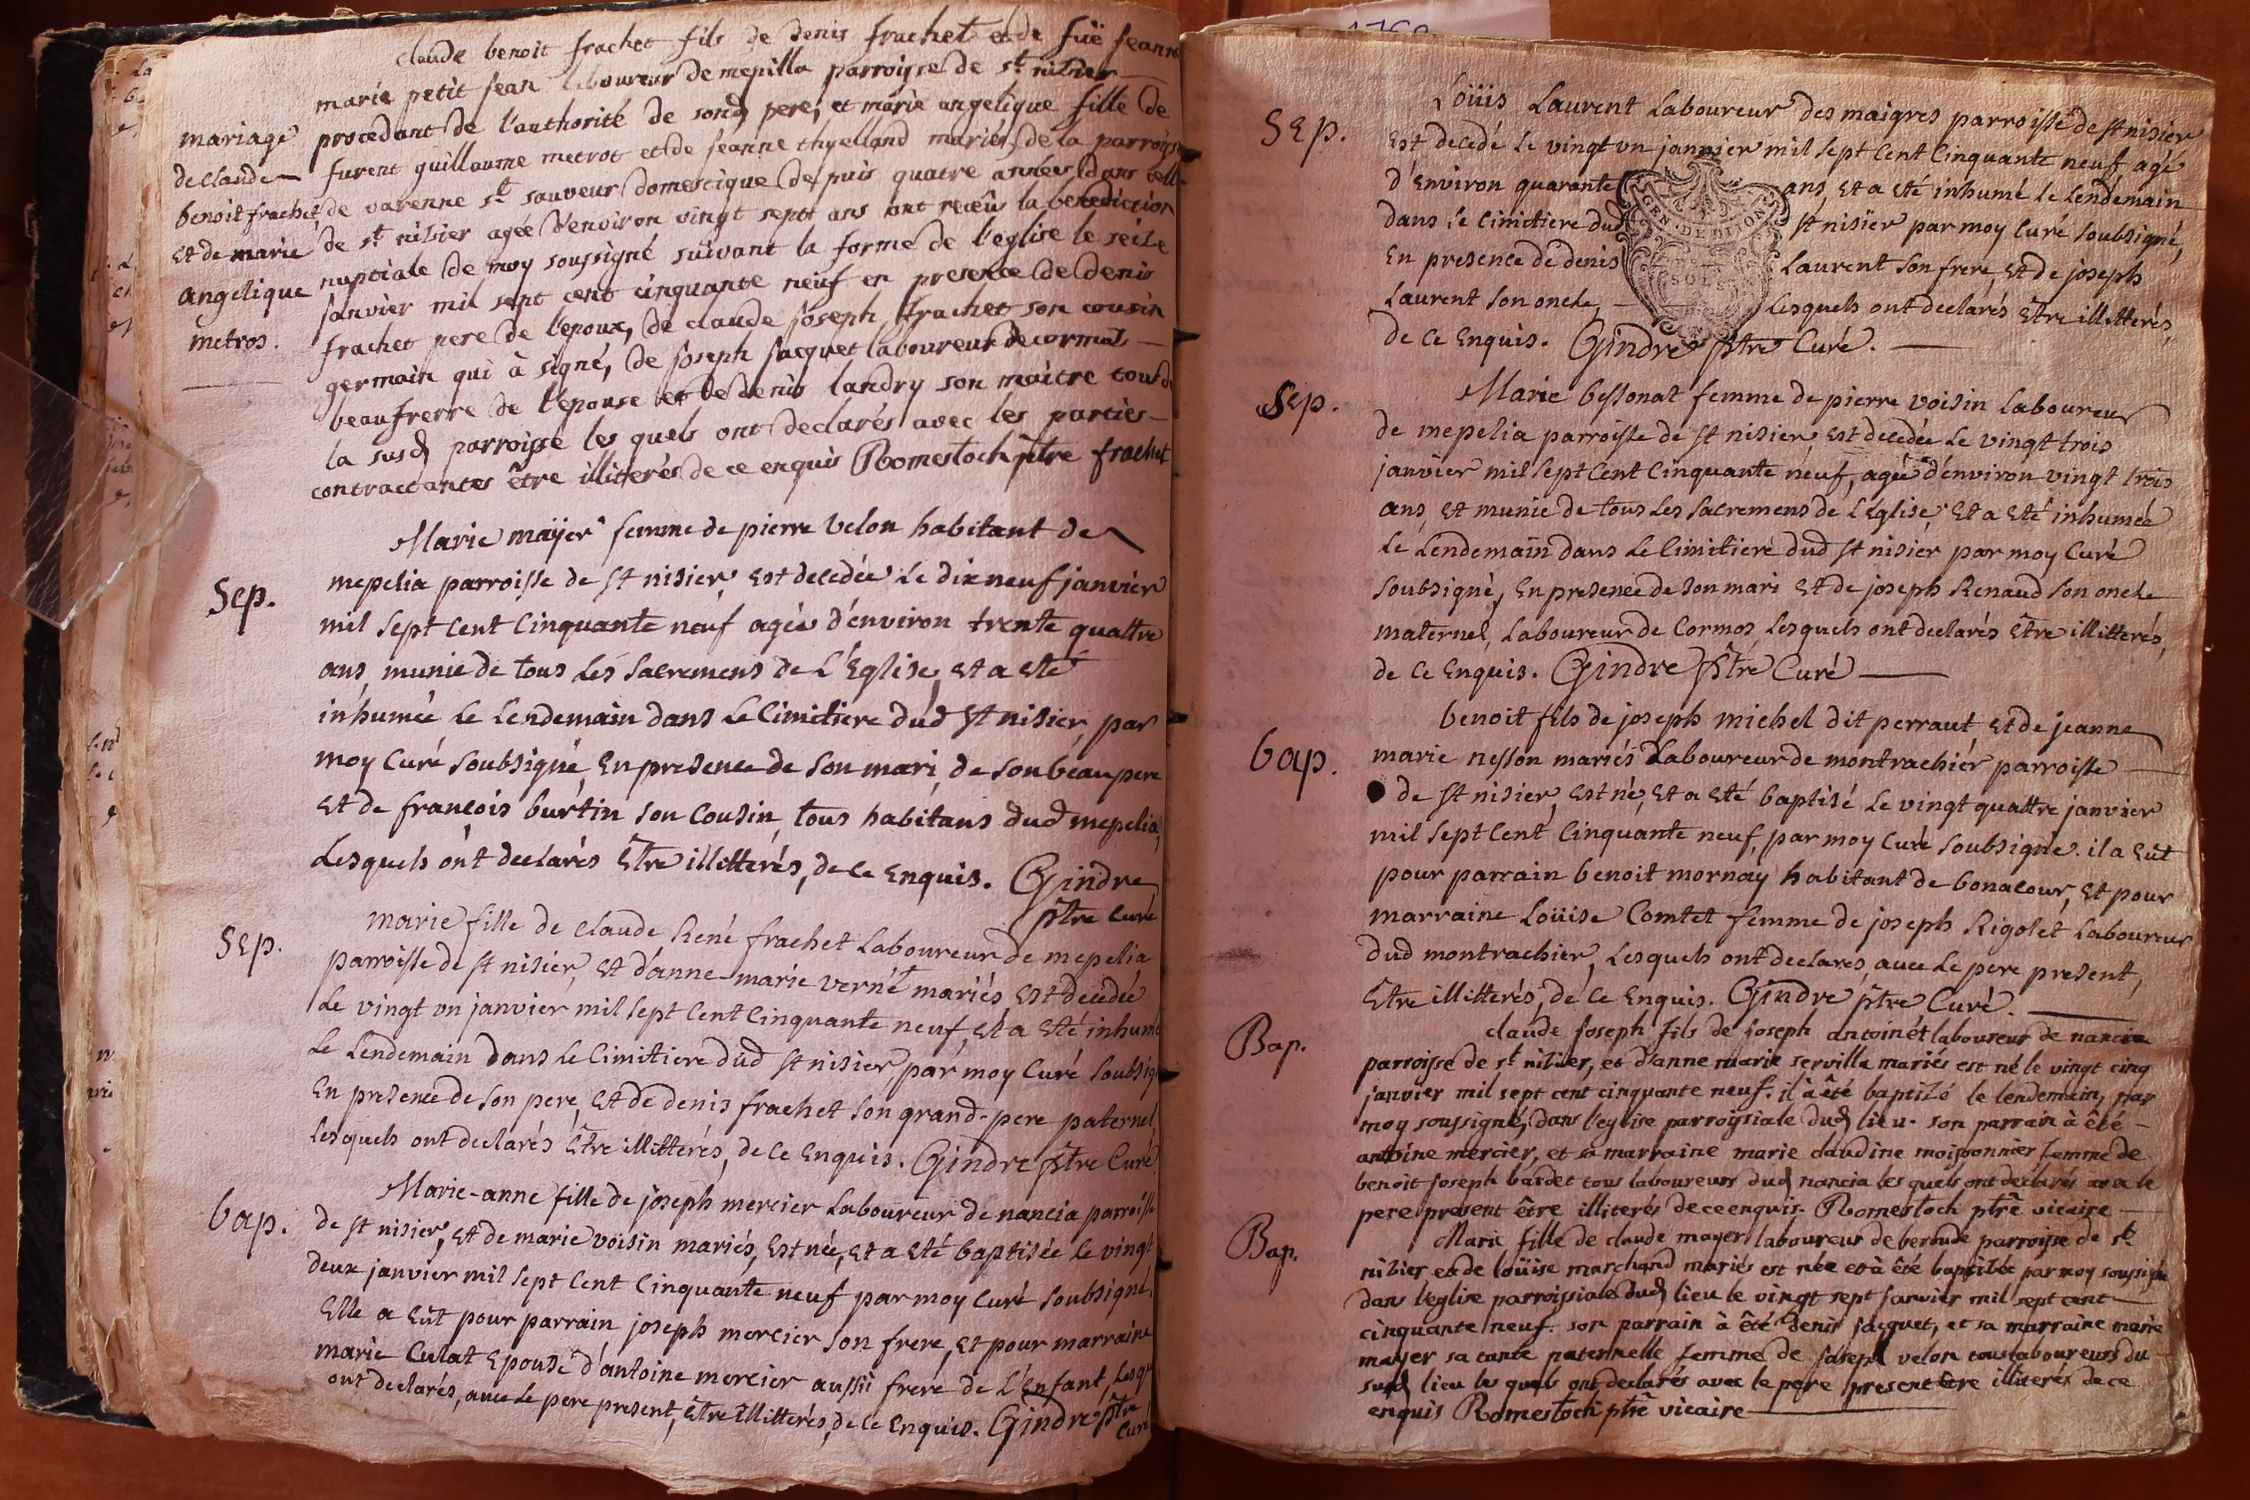 claude benoit frachet fils de denis frachet et de fuë jeanne
marie petit jean laboureur de mepilla parroisse de st nizier
mariage
procedant de l'authorité de sond pere, et marie angelique fille de
de claude
furent guillaume metrot et de jeanne thyelland mariés, de la parroisse
benoit frachet,
de varenne st sauveur domestique depuis quatre années dans celle
et de marie
de st nizier agée d'environ vingt sept ans ont recëu la benediction
angelique
nuptiale de moy soussigné suivant la forme de l'eglise le seize
metros.
janvier mil sept cent cinquante neuf en presence de denis
frachet pere de l'epoux, de claude joseph frachet son cousin
germain qui à signé, de joseph jacquet laboureur de cormoz
beaufrerre de l'epouse et de denis landry son maitre tous de
la susd parroisse les quels ont declarés avec les parties
contractantes être illiterés de ce enquis Romestoch ptre frachet
Marie maÿer femme de pierre velon habitant de
Sep.
mepelia parroisse de st nisier, est decedée le dix neuf janvier
mil sept cent cinquante neuf agée d'environ trente quattre
ans, munie de tous les sacremens de l'Eglise, et a eté
inhumée le lendemain dans le cimitiere dud st nisier, par
moy curé soubsigné en presence de son mari, de son beau pere
et de francois burtin son cousin, tous habitans dud mepelia,
lesquels ont declarés être illitterés, de ce enquis. Gindre
ptre curé
Sep.
marie fille de claude René frachet laboureur de mepelia
parroisse de st nisier, et d'anne-marie verné mariés, est decedée
le vingt un janvier mil sept cent cinquante neuf, et a eté inhumé
le lendemain dans le cimitiere dud st nisier, par moy curé soubsig
en presence de son pere, et de denis frachet son grand-pere paternel
lesquels ont declarés être illitterés, de ce enquis. Gindre ptre curé
Marie-anne fille de joseph mercier laboureur de nancia parroisse
bap.
de st nisier, et de marie voisin mariés, est née, et a eté baptisée le vingt
deux janvier mil sept cent cinquante neuf par moy curé soubsigné,
elle a eût pour parrain joseph mercier son frere, et pour marraine
marie culat epouse d'antoine mercier aussi frere de l'enfant, lesqu
ont declarés, avec le pere present, être illitterés, de ce enquis. Gindre ptre
curé
Loüis Laurent laboureur des maigres parroisse de st nisier
Sep.
est decedé le vingt un janvier mil sept cent cinquante neuf, agé
d'environ quarante ans, et a eté inhumé le lendemain
dans le cimitiere dud st nisier par moy curé soubsigné,
en presence de denis Laurent son frere, et de joseph
Laurent son oncle, lesquels ont declarés être illitterés,
de ce enquis. Gindre ptre curé.
GEN. DE DIJON
SOLS
Marie bessonat femme de pierre voisin laboureur
Sep.
de mepelia parroisse de st nisier est decedée le vingt trois
janvier mil sept cent cinquante neuf, agée d'environ vingt trois
ans, et munie de tous les sacremens de l'Eglise, et a eté inhumée
le lendemain dans le cimitiere dud st nisier par moy curé
soubsigné, en presence de son mari et de joseph Renaud son oncle
maternel, laboureur de cormos, lesquels ont declarés être illitterés,
de ce enquis. Gindre ptre curé
benoit fils de joseph michel dit perraut, et de jeanne
bap.
marie nesson mariés laboureur de montrachier parroisse
de st nisier, est né, et a eté baptisé le vingt quattre janvier
mil sept cent cinquante neuf, par moy curé soubsigné. il a eût
pour parrain benoit mornay habitant de bonacour, et pour
marraine Loüise Comtet femme de joseph Rigolet laboureur
dud montrachier, lesquels ont declarés, avec le pere present,
être illitterés, de ce enquis. Gindre ptre curé.
Bap.
claude joseph fils de joseph antoinét laboureur de nancia
parroisse de st nizier, et d'anne marie servilla mariés est né le vingt cinq
janvier mil sept cent cinquante neuf. il à êté baptizé le lendemain, par
moy soussigné, dans l'eglise parroissiale dud lieu. son parrain à êté
antoine mercier, et sa marraine marie claudine moissonnier femme de
benoit joseph bardet tous laboureurs dud nancia les quels ont declarés avec le
pere present être illiterés de ce enquis. Romestoch ptre vicaire
Bap.
Marie fille de claude mayer laboureur de beroude parroisse de st
nizier et de loüise marchand mariés est née et à êté baptizée par moy soussigné
dans l'eglise parroissiale dud lieu le vingt sept janvier mil sept cent
cinquante neuf. son parrain à êté denis jacquet, et sa marraine marie
mayer sa tante paternelle femme de joseph velon tous laboureurs du
susd lieu les quels ont declarés avec le pere present être illiterés de ce
enquis Romestoch ptre vicaire